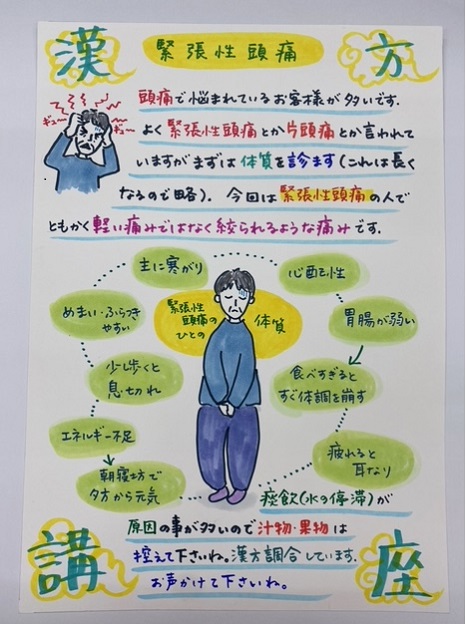 漢方
緊張性頭痛
頭痛で悩まれているお客様が多いです.
よく緊張性頭痛とか片頭痛とか言われて
いますがまずは体質を診ます(これは長く
なるので略). 今回は緊張性頭痛の人で
ともかく軽い痛みではなく絞られるような痛みです.
ギュー
ギュー
主に寒がり
心配性
めまい・ふらつき
やすい
緊張性
頭痛の
ひとの
体質
胃腸が弱い
少し歩くと
息切れ
食べすぎると
すぐ体調を崩す
エネルギー不足
疲れると
耳なり
朝寝坊で
夕方から元気
痰飲(水の停滞)が
原因の事が多いので汁物・果物は
控えて下さいね。漢方調合しています.
お声かけて下さいね。
講座